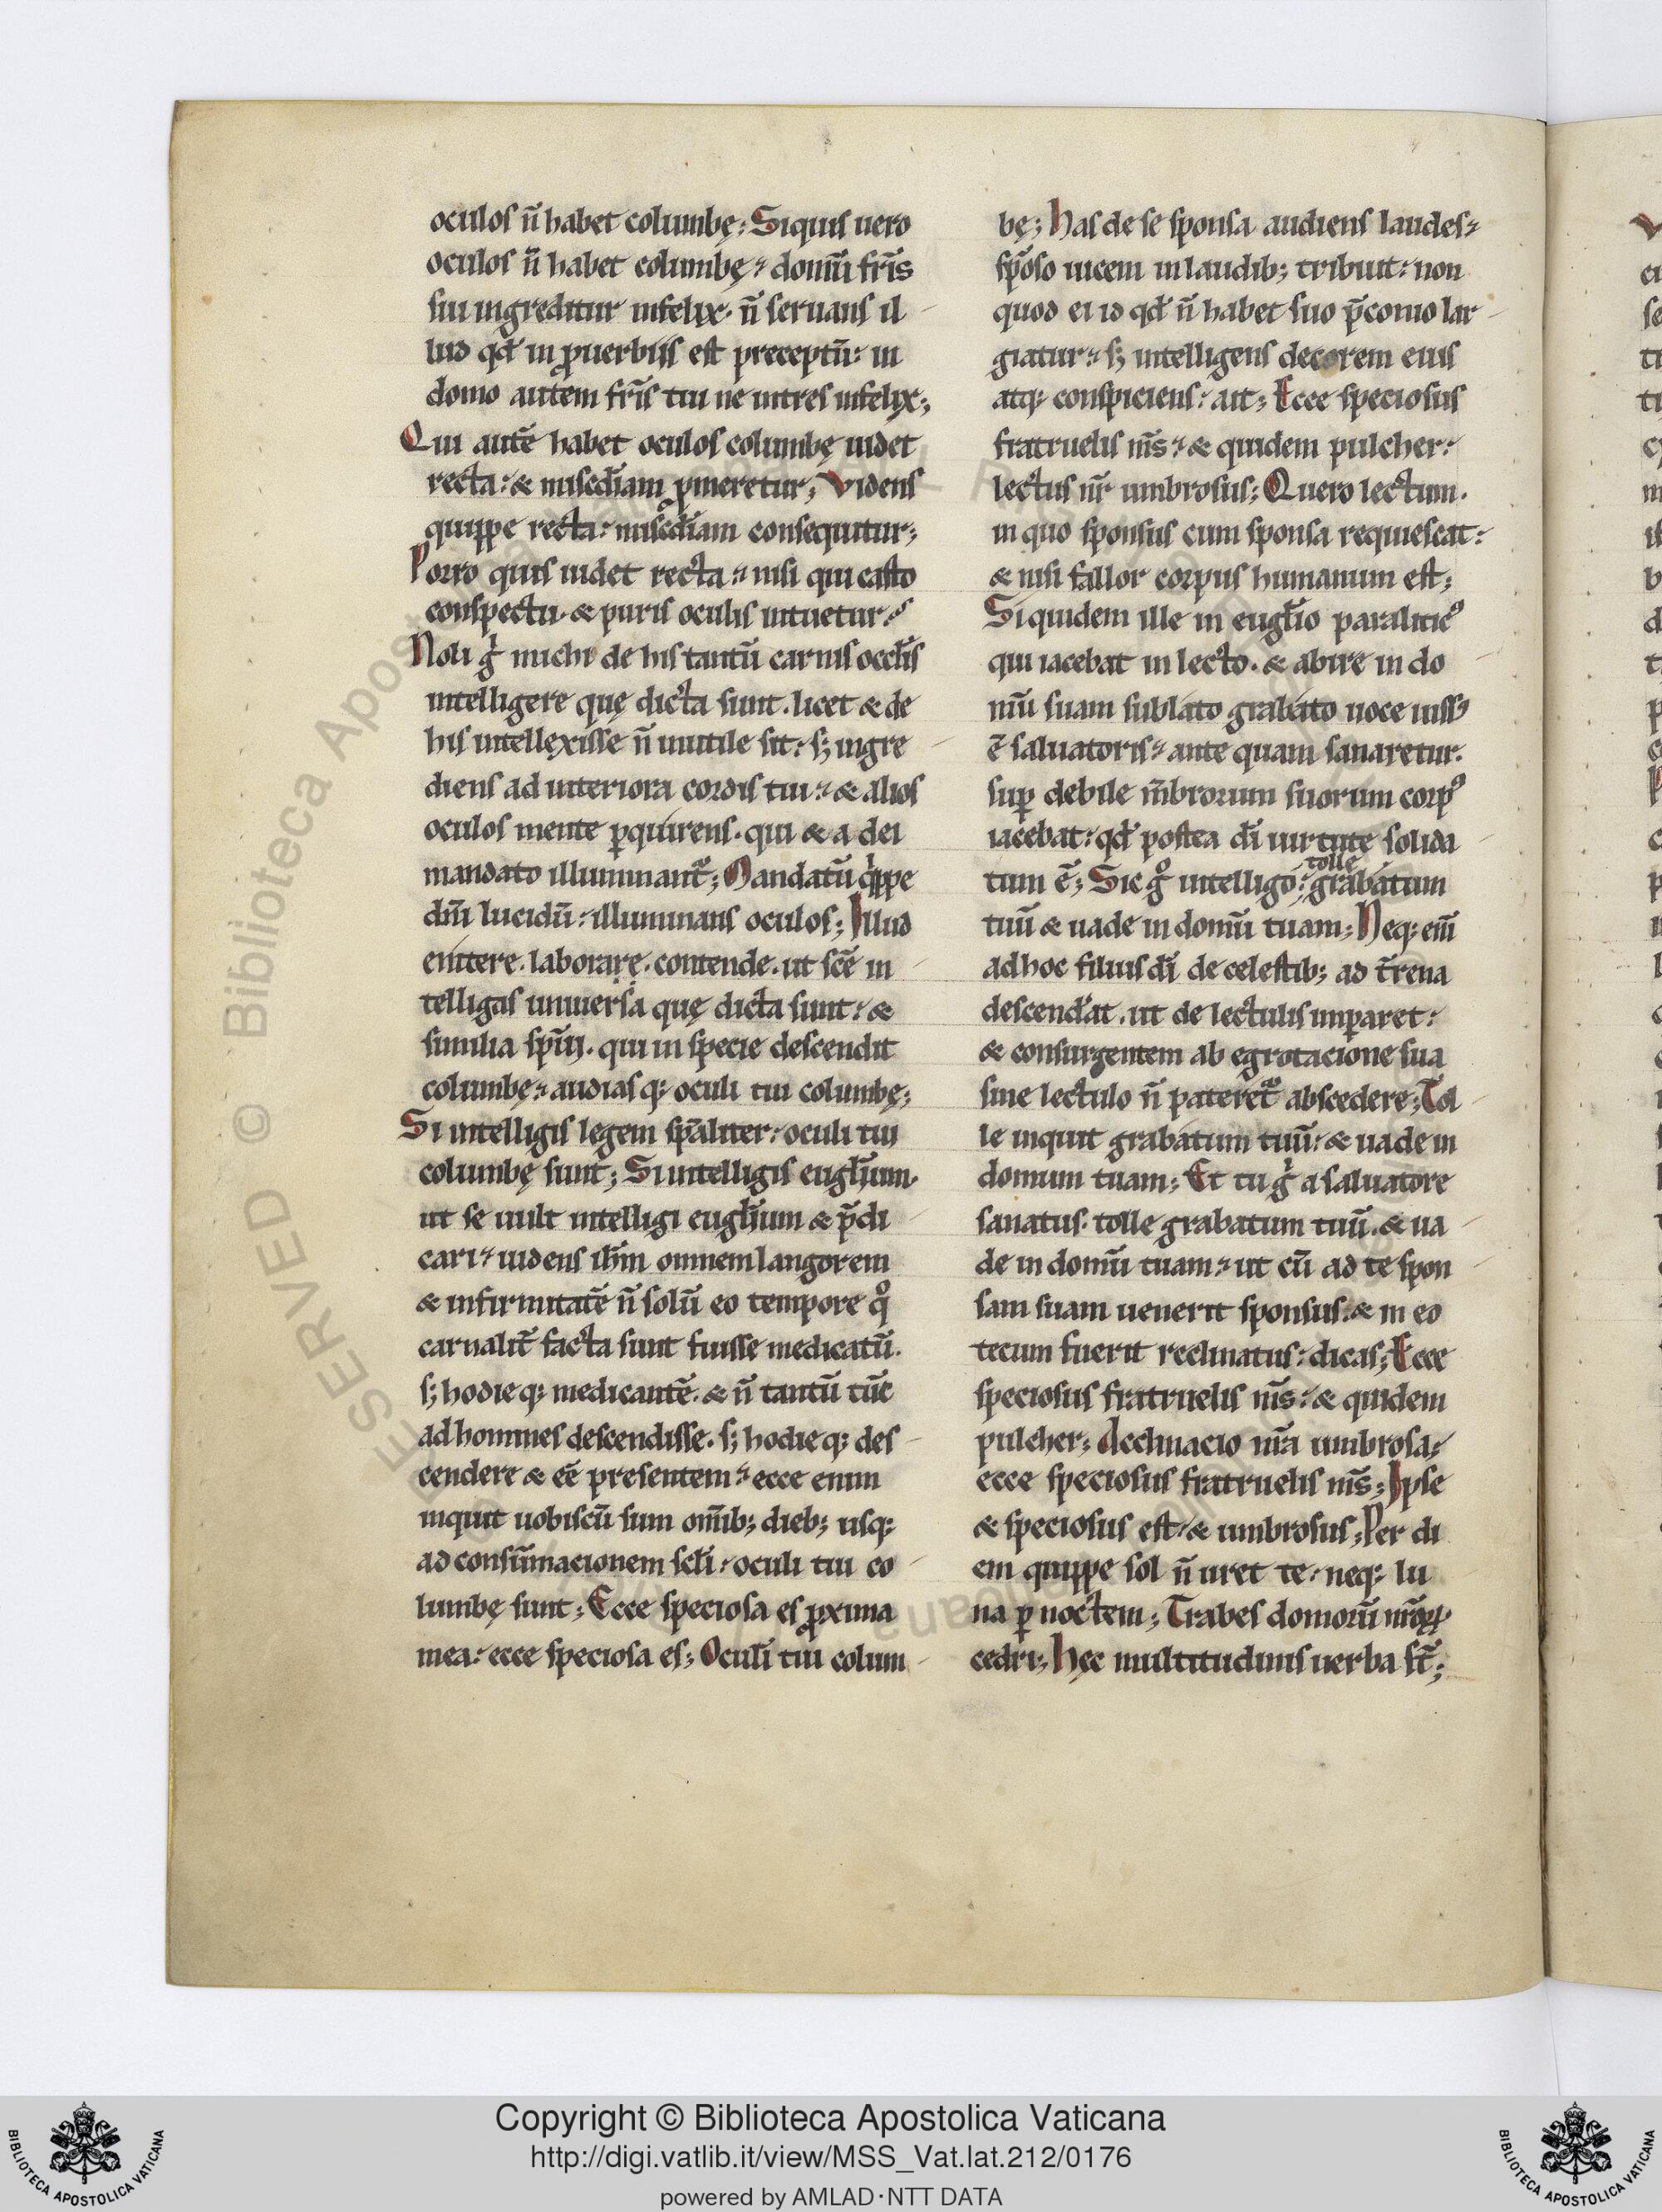 oculos n̄ habet columbę; Siquis uero
oculos n̄ habet columbę·⁊ domū fr̄is
sui ingreditur infelix· n̄ seruans il
lud qđ in ꝓuerbiis est preceptū: in
domo autem fr̄is tui ne intres infelix;
Qui autē habet oculos columbę uidet
recta: & misc̄diam ꝓmeretur; Videns
quippe recta: misc̄diam consequitur;
Porro quis uidet recta·⁊ nisi qui casto
conspectu· & puris oculis intuetur?
Noli gͥ michi de his tantū carnis occl̄is
intelligere quę dicta sunt. licet & de
his intellexisse n̄ inutile sit: sꝫ ingre
diens ad interiora cordis tui·⁊ & alios
oculos mente ꝑquirens. qui & a dei
mandato illuminant᷑; Mandatū qͥppe
dn̄i lucidū: illuminans oculos; Illud
enitere. laborare. contende. ut sc̄e in
telligas uniuersa quę dicta sunt: &
similia sp̄iu. qui in specie descendit
columbę·⁊ audias qꝫ oculi tui columbę;
Si intelligis legem sp̄aliter: oculi tui
columbę sunt; Si intelligis eugl̄ium.
ut se uult intelligi eugl̄ium & p̄di
cari·⁊ uidens ih̄m omnem langorem
& infirmitatē n̄ solū eo tempore qͦ
carnalit̄ facta sunt fuisse medicatū.
sꝫ hodieqꝫ medicantē. & n̄ tantū tūc
ad homines descendisse. sꝫ hodieqꝫ des
cendere & eē presentem·⁊ ecce enim
inquit uobiscū sum om̄ibꝫ diebꝫ usqꝫ
ad consūmacionem scl̄i: oculi tui co
lumbę sunt; Ecce speciosa es ꝓxima
mea: ecce speciosa es; Oculi tui colum
bę; Has de se sponsa audiens laudes·⁊
sp̄oso uicem in laudibꝫ tribuit: non
quod ei id qđ n̄ habet suo p̄conio lar
giatur·⁊ sꝫ intelligens decorem eius
atqꝫ conspiciens: ait; Ecce speciosus
fratruelis m̄s·⁊ & quidem pulcher:
lectus nr̄ umbrosus; Quero lectum.
in quo sponsus cum sponsa requiescat:
& nisi fallor corpus humanum est;
Siquidem ille in eugl̄io paraliticꝰ
qui iacebat in lecto. & abire in do
mū suam sublato grabatto uoce iussꝰ
ē saluatoris·⁊ ante quam sanaretur.
suꝑ debile m̄brorum suorum corpꝰ
iacebat: qđ postea dī uirtute solida
tum ē; Sic gͦ intelligo: tolle grabatum
tuū & uade in domū tuam; Neqꝫ eni̅
ad hoc filius dī de celestibꝫ ad t̄rena
descend̄at. ut de lectulis imꝑaret:
& consurgentem ab egrotacione sua
sine lectulo n̄ pateret᷑ abscedere; Tol
le inquit grabatum tuū: & uade in
domum tuam; Et tu gͥ a saluatore
sanatus. tolle grabatum tuū. & ua
de in domū tuam·⁊ ut cū ad te spon
sam suam uenerit sponsus: & in eo
tecum fuerit reclinatus: dicas; Ecce
speciosus fratruelis m̄s: & quidem
pulcher; Acclinacio nr̄a umbrosa·⁊
ecce speciosus fratruelis m̄s; Ipse
& speciosus est: & umbrosus; Per di
em quippe sol n̄ uret te: neqꝫ lu
na ꝑ noctem; Trabes domorū nr̄oꝝ
cedri; Hęc multitudinis uerba st̄;
Copyright © Biblioteca Apostolica Vaticana
http://digi.vatlib.it/view/MSS_Vat.lat.212/0176
powered by AMLAD·NTT DATA
BIBLIOTECA APOSTOLICA VATICANA
BIBLIOTECA APOSTOLICA VATICANA